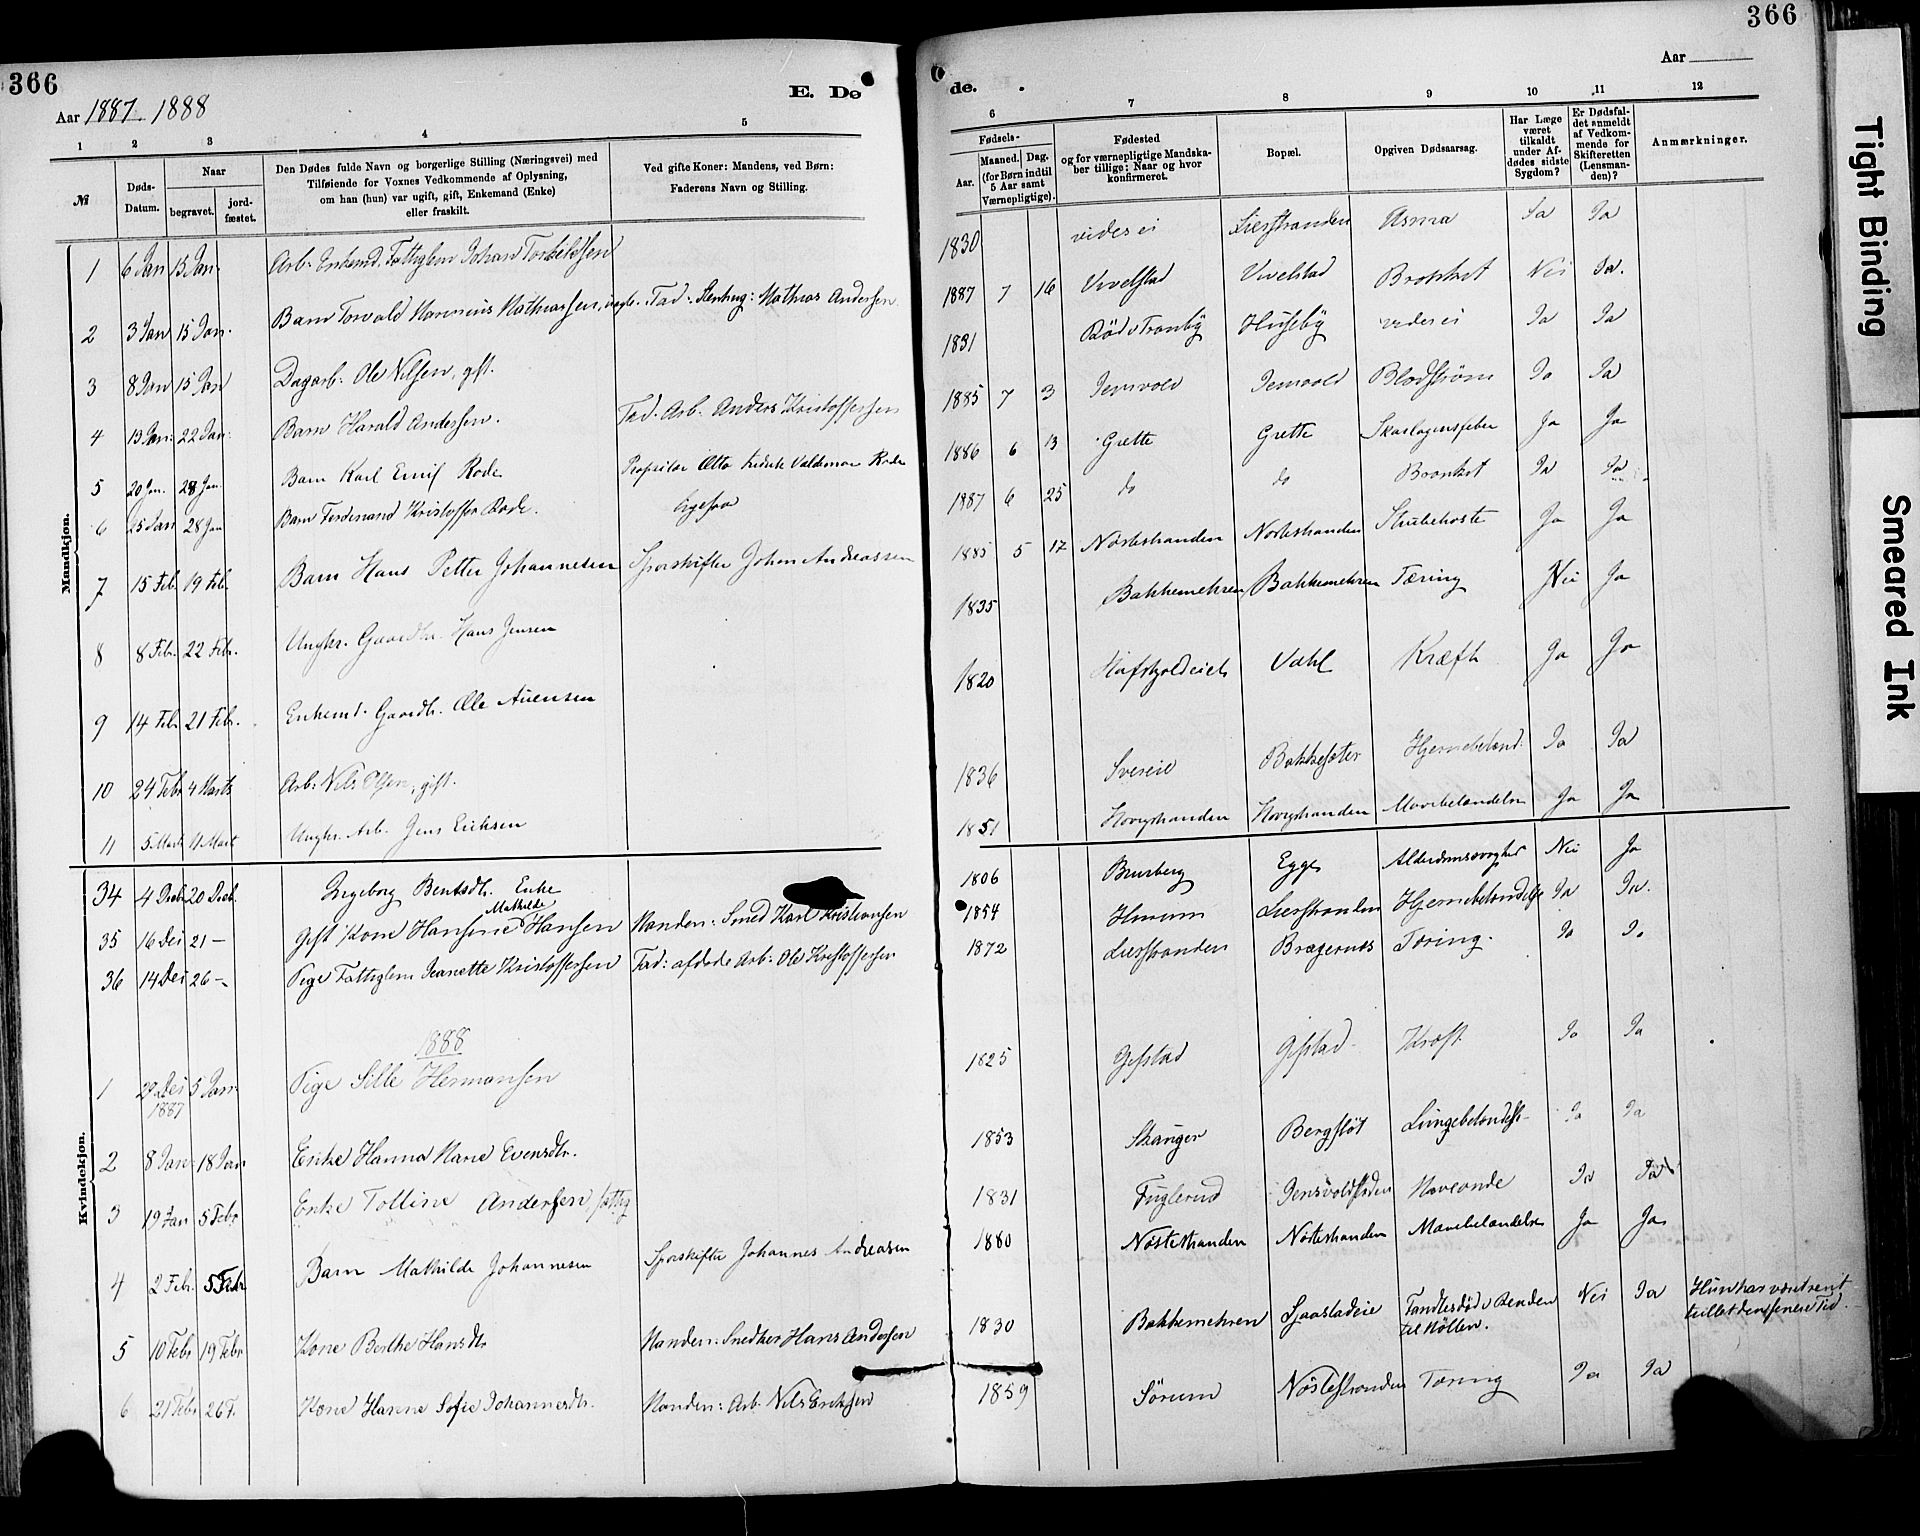 366
Aar 1887-1888
E. De
1 2 3 4 5
№
Døds-
Datum.
Naar
begravet.
jord-
fæstet.
Den Dødes fulde Navn og borgerlige Stilling (Næringsvei) med
Tilføiende for Voxnes Vedkommende af Oplysning,
om han (hun) var ugift, gift, Enkemand (Enke)
eller fraskilt.
Ved gifte Koner: Mandens, ved Børn:
Faderens Navn og Stilling.
Mandkjøn.
1 6 Jan 13 Jan. Arb. Enkemd. Fattiglem Johan Torkildsen
2 3 Jan 15 Jan. Barn Torvald Mathiassen, Fad: Mathias Andersen
3 8 Jan 15 Jan Dagarb: Ole Nilsen, gift.
4 13 Jan: 22 Jan: Barn Harald Andersen. Fad: Arb. Anders Kristoffersen
5 20 Jan. 28 Jan. Barn Karl Emil Rode Proprietær Otto Fredrik Valdemar Rode
6 25 Jan 28 Jan Barn Ferdinand Kristoffer Rode. Ligesaa
7 15 Feb. 19 Feb. Barn Hans Petter Johannesen Sporskifter Johan Andreassen
8 8 Feb. 22 Febr. Ungkr. Gaardbr. Hans Jensen
9 14 Feb 21 Febr. Enkemd. Gaardb. Ole
10 24 Febr 4 Marts Arb: Nils Olsen, gift.
11 5 Mart 11 Mart Ungkr. Arb. Jens Eriksen
Kvindekjøn.
34 4 Decb 20 Decb. Ingeborg Bentsdtr. Enke
35 16 Dei 21 — Gift Kone Hansine Mathilde Hansen Manden: Smed Karl Kristiansen
36 14 Dei 26 — Pige Fattiglem Jeanette Kristoffersen Fad: afdøde Arb: Ole Kristoffersen
1888
1 29 Dei 1887 5 Jan: Pige Sille Hermansen
2 8 Jan 18 Jan Enke Hanna Marie Evensdtr.
3 19 Jan 5 Febr Enke Tolline Andersen fattig
4 2 Febr. 5 Febr Barn Mathilde Johannesen Sporskifter Johannes Andreasen
5 10 Febr 19 Febr Kone Berthe Hansdtr Manden: Snedker Hans Andersen
6 21 Febr 26 F. Kone Hanne Sofie Johannesdtr. Manden: Arb. Nils Eriksen
366
Aar
de.
6 7 8 9 10 11 12
Fødsels-
Aar.
Maaned. Dag.
(for Børn indtil
5 Aar samt
Værnepligtige).
Fødested
og for værnepligtige Mandska-
ber tillige: Naar og hvor
konfirmeret.
Bopæl.
Opgiven Dødsaarsag.
Har Læge
været
tilkaldt
under Af-
dødes sidste
Sygdom?
Er Dødsfal-
det anmeldt
af Vedkom-
mende for
Skifteretten
(Lensman-
den)?
Anmærkninger.
1830 vides ei Lierstranden Asma Ja Ja
1887 7 16 Vivelstad Vivelstad Bronkit Nei Ja.
1831 Rød v Tranby Huseby vides ei Ja Ja
1885 7 3 Jensvold Jensvold Blodstrøm Ja Ja
1886 6 13 Grette Grette Skarlagensfeber Ja Ja
1887 6 25 do do Bronkit Ja Ja
1885 5 17 Nøstestranden Nøstestranden Strubehoste Ja Ja
1835 Bakkemehren Bakkemehren Tæring Nei Ja
1820 Vahl Kræft Ja Ja
1836 Svereie Hjernebetænd. Ja Ja
1851 Horgstranden Horgstranden Mavebetændelse Ja Ja
1806 Brusberg Egge Alderdomssvaghed Nei Ja
1854 Hurum Lierstranden Hjernebetændelse Ja Ja.
1872 Lierstranden Bragernes Tæring. Ja Ja
1825 Gifstad Gifstad Kræft Ja Ja
1853 Stanger Bergfløt Lungebetændelse Ja Ja
1831 Fuglerud Maveonde Ja Ja
1880 Nøstestranden Nøstestranden Mavebetændelse Ja Ja
1830 Bakkemehren Fandtes død v Randen Nei Ja Hun har været svit
til Møllen. den senere Tid.
1859 Sørum Nøstestranden Tæring Ja Ja
Tight Binding
Smeared Ink